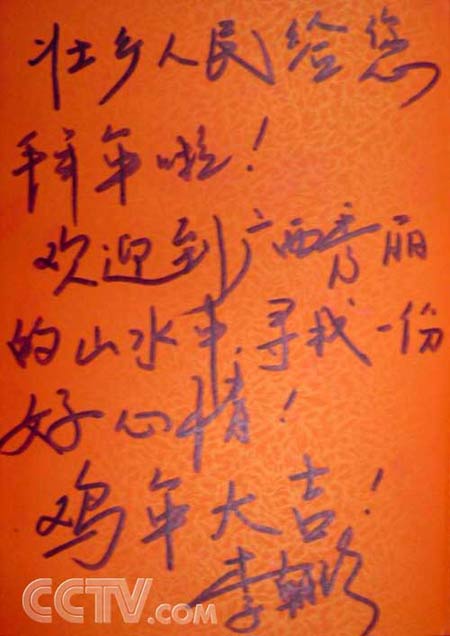 壮乡人民给您
拜年啦！
欢迎到广西秀丽
的山水中寻找一份
好心情！
鸡年大吉！
李
CCTV.com